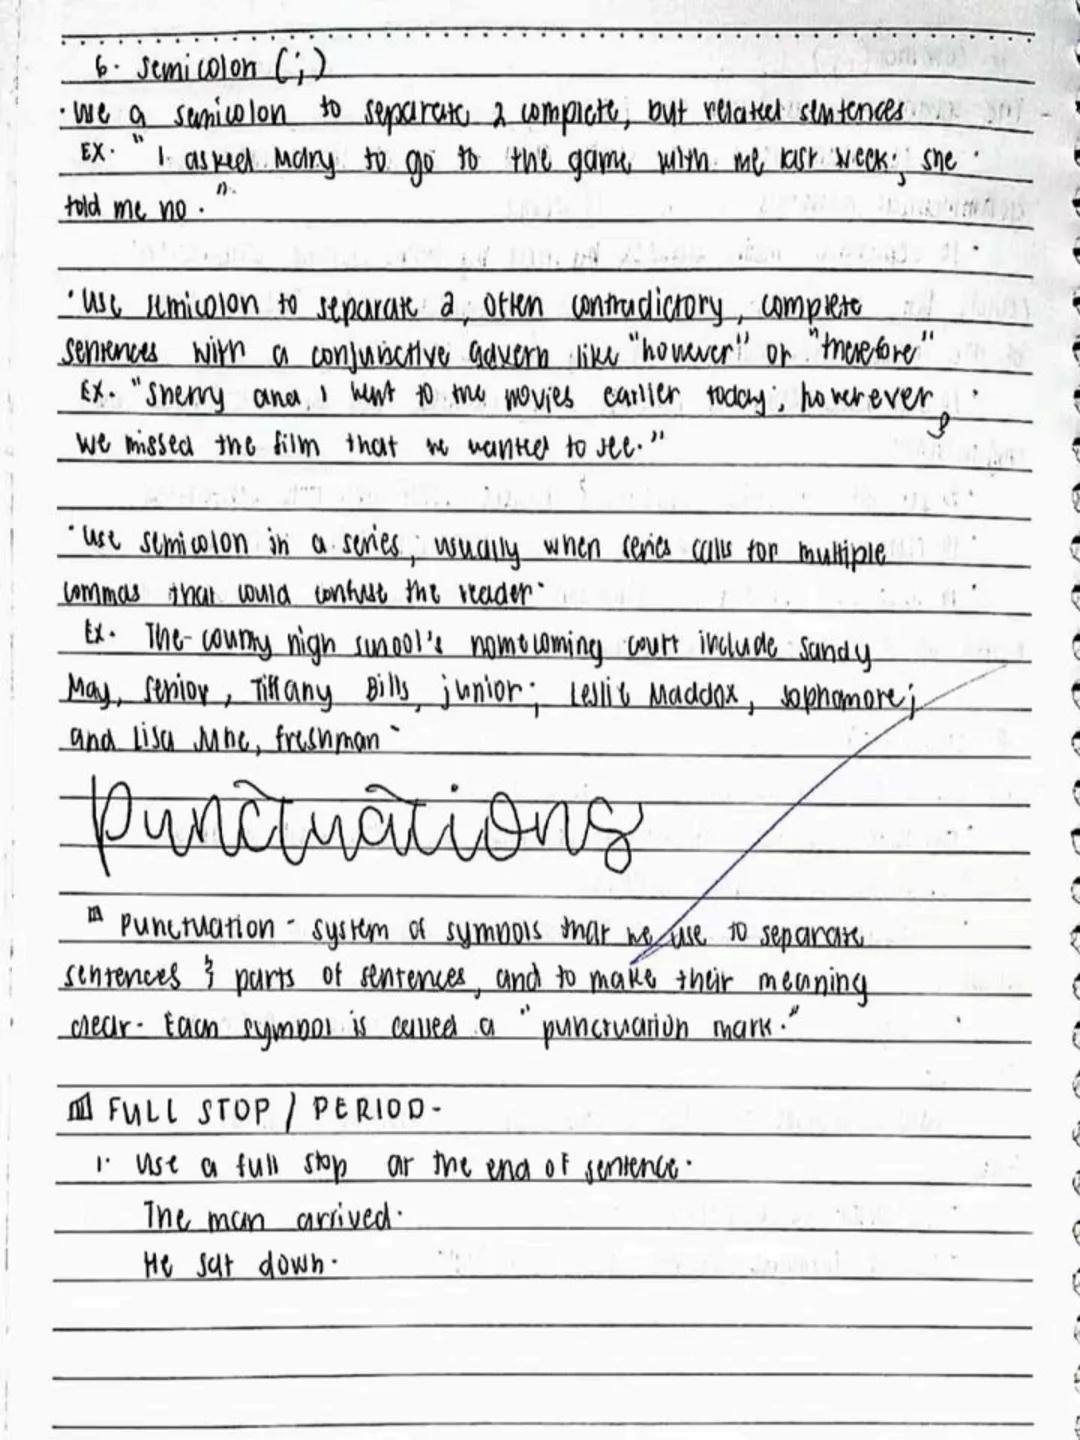 6. Semicolon (;)
• use a semicolon to separate 2 complete, but related sentences
EX. "I asked Mary to go to the game with me last week; she
told me no."
• Use semicolon to separate 2, often contradictory, complete
sentences with a conjunctive adverb like "however" or "therefore"
EX. "Sherry and I went to the movies earlier today; however,
we missed the film that we wanted to see."
• Use semicolon in a series, usually when series calls for multiple
commas that could confuse the reader.
Ex. The county high school's homecoming court include Sandy
May, senior, Tiffany Bills, junior; Leslie Maddox, sophomore;
and Lisa, freshman
Punctuations
Punctuation - system of symbols that we use to separate
sentences & parts of sentences, and to make their meaning
clear. Each symbol is called a "punctuation mark."
FULL STOP / PERIOD -
1. Use a full stop at the end of sentence.
The man arrived.
He sat down.